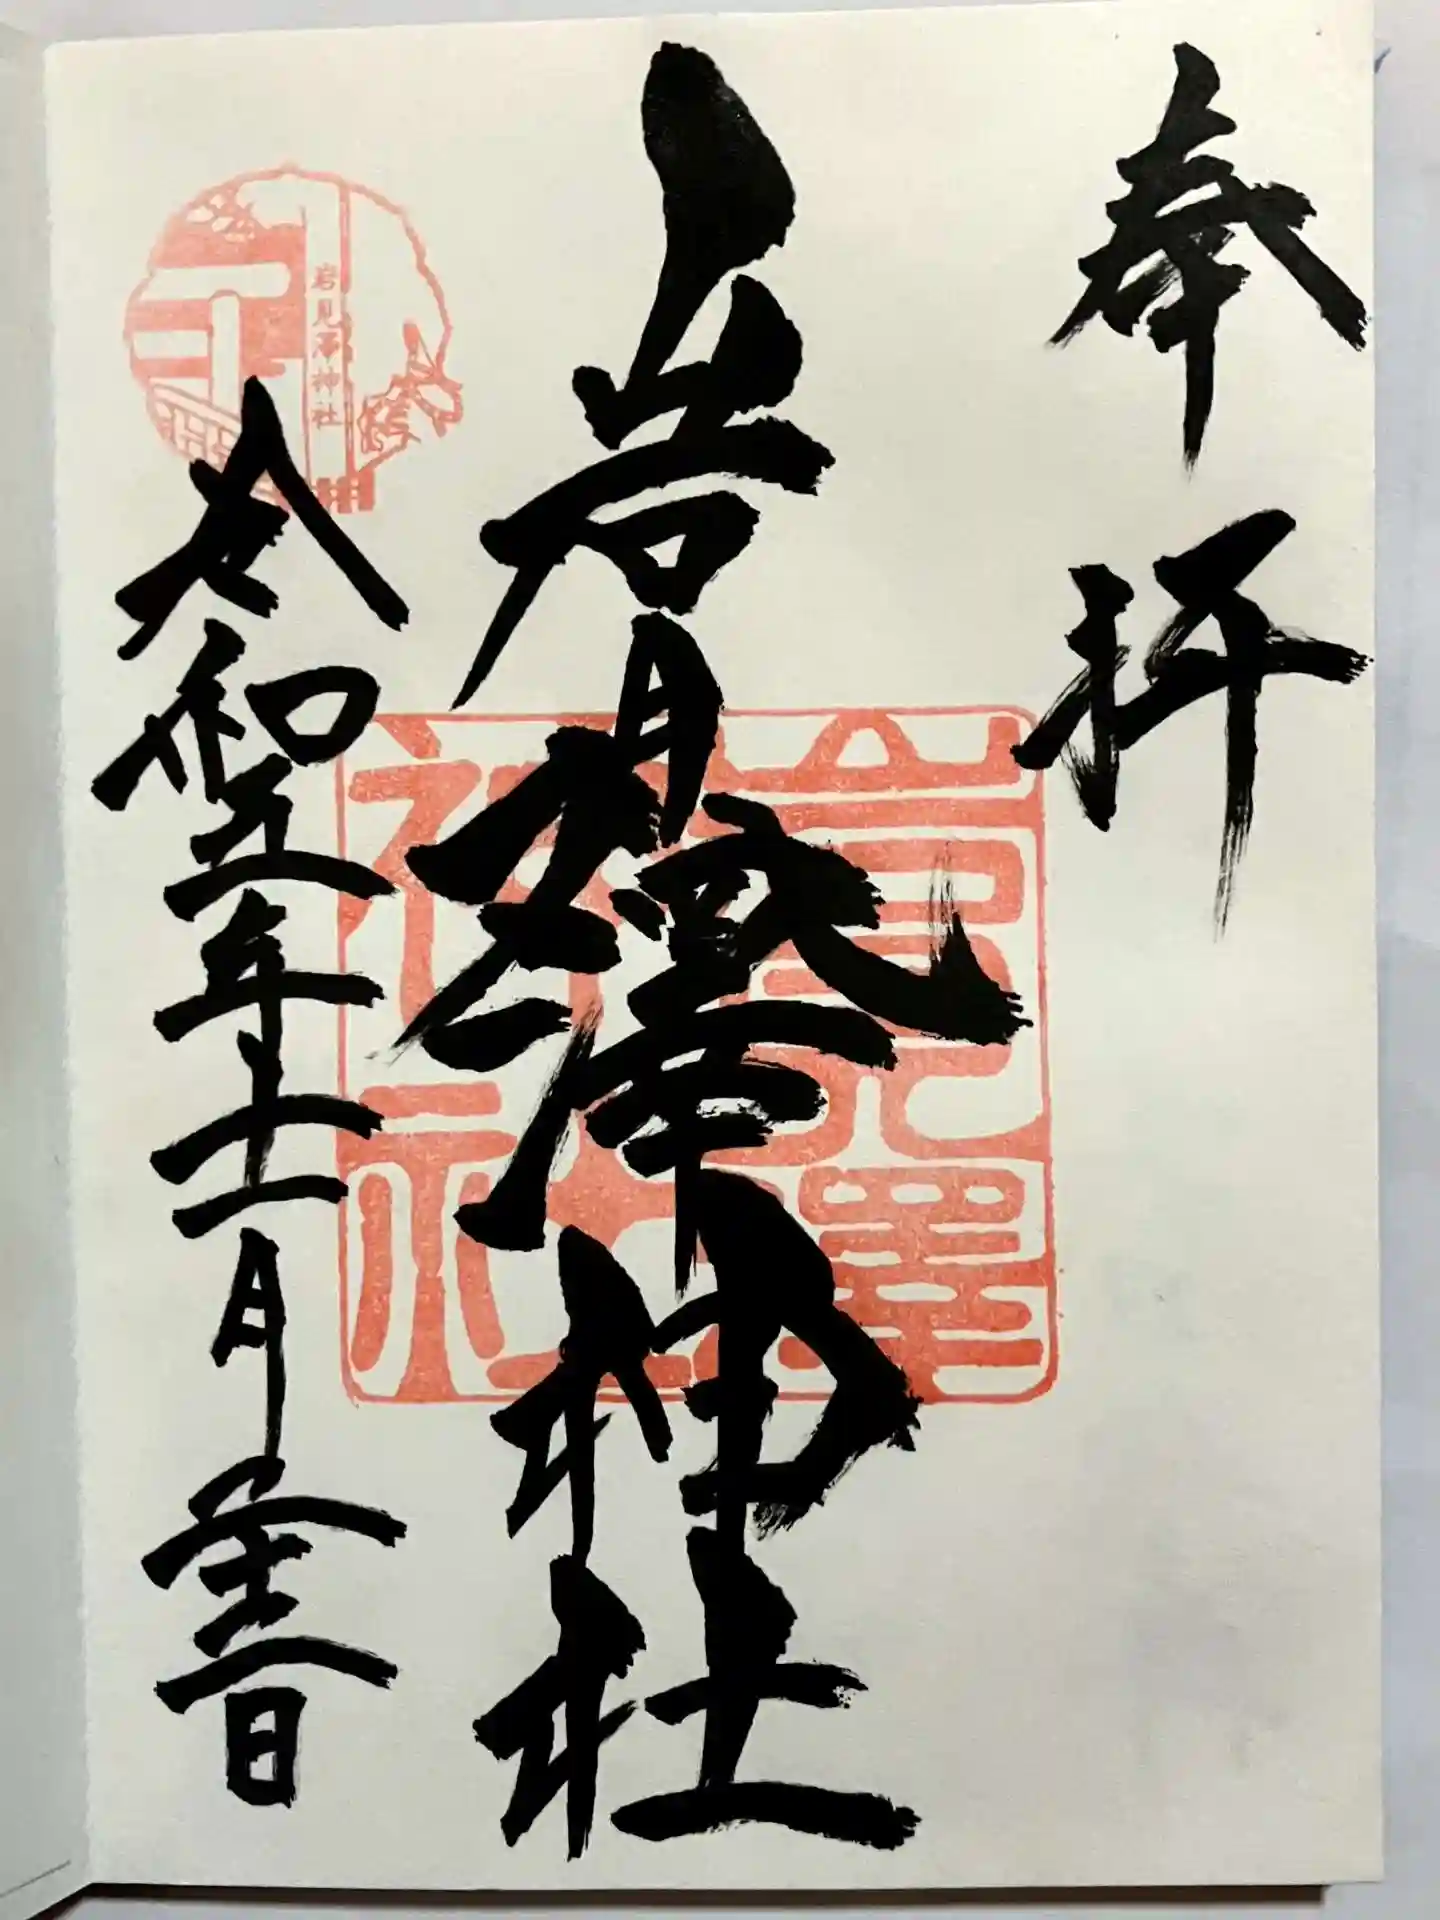 奉拝
岩見澤神社
令和五年十一月日
岩見澤神社
岩見澤神社